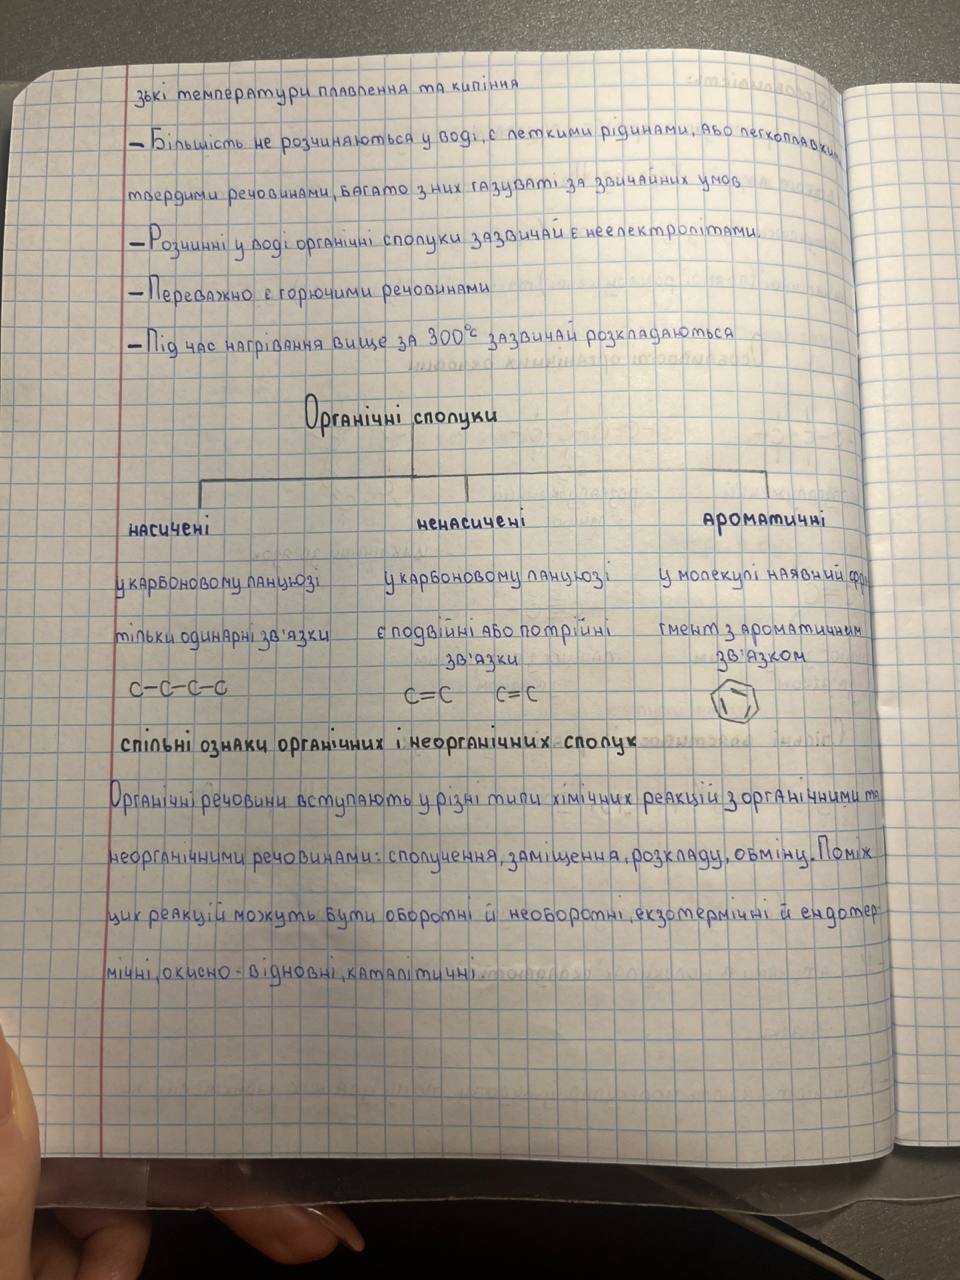 зькі температури плавлення та кипіння
– Більшість не розчиняються у воді, є леткими рідинами, або легкоплавкими
твердими речовинами, багато з них газуваті за звичайних умов
– Розчинні у воді органічні сполуки зазвичай є неелектролітами.
– Переважно є горючими речовинами
– Під час нагрівання вище за 300°C зазвичай розкладаються
Органічні сполуки
насичені ненасичені ароматичні
у карбоновому ланцюзі у карбоновому ланцюзі у молекулі наявний фра
тільки одинарні зв'язки є подвійні або потрійні гмент з ароматичним
зв'язки зв'язком
C–C–C–C C=C C=C
спільні ознаки органічних і неорганічних сполук
Органічні речовини вступають у різні типи хімічних реакцій з органічними та
неорганічними речовинами: сполучення, заміщення, розкладу, обміну. Поміж
цих реакцій можуть бути оборотні й необоротні, екзотермічні й ендотер
мічні, окисно - відновні, каталітичні.